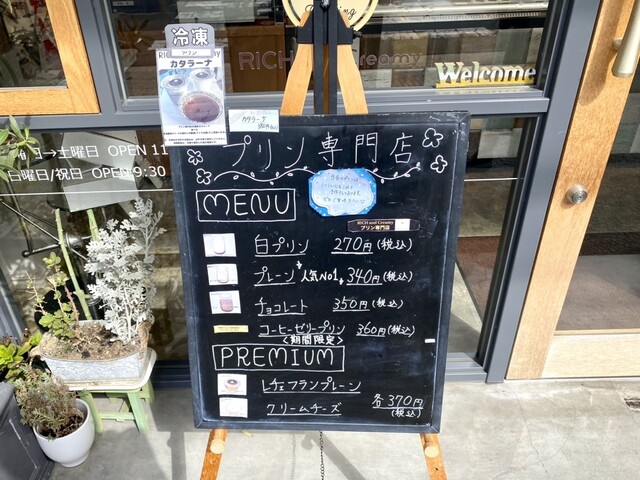 RICH and Creamy
Welcome
冷凍
プリン
カタラーナ
カタラーナ
月曜日→土曜日 OPEN 11
日曜日/祝日 OPEN 9:30
プリン専門店
MENU
RICH and Creamy
プリン専門店
白プリン 270円(税込)
プレーン 人気No1 340円(税込)
チョコレート 350円(税込)
コーヒーゼリープリン 360円(税込)
<期間限定>
PREMIUM
レチェフランプレーン
クリームチーズ 各370円
(税込)